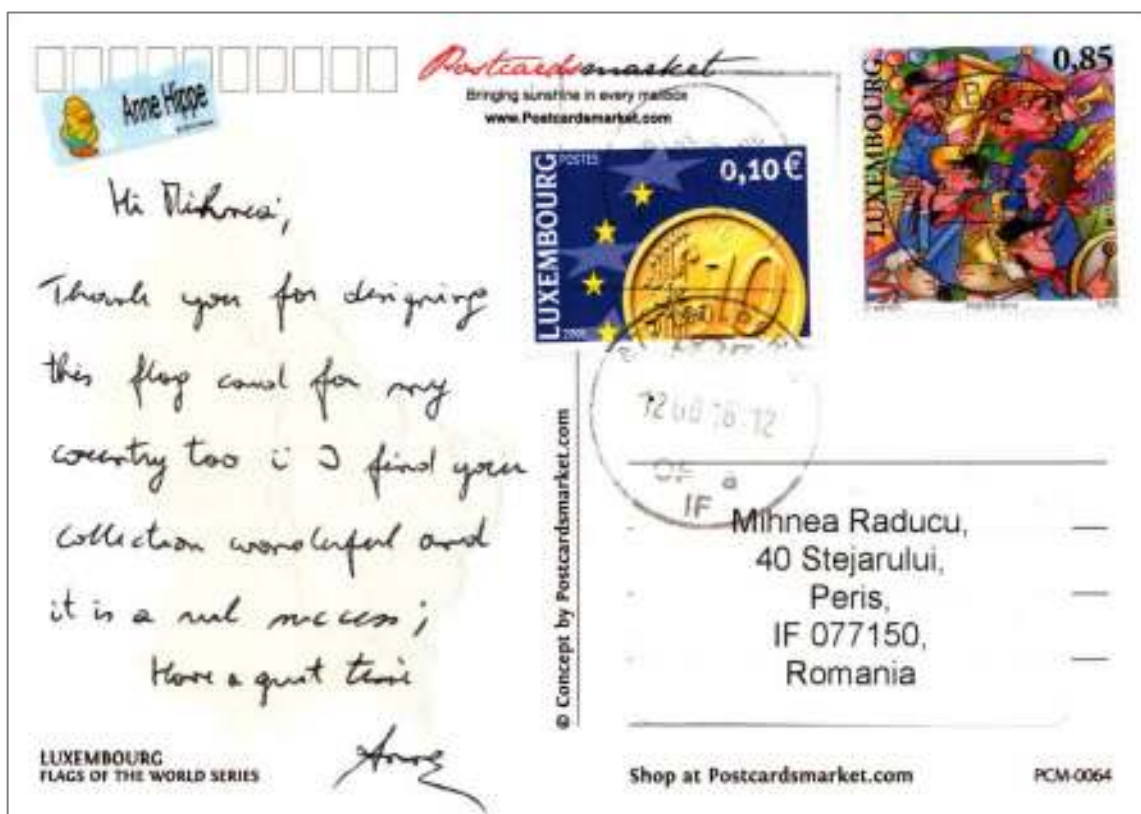 Postcardsmarket
Bringing sunshine in every mailbox
www.Postcardsmarket.com
Anne Hippe
LUXEMBOURG
0,85
LUXEMBOURG
POSTES
0,10 €
2001
10
Hi Mihnea,
Thank you for designing
this flag card for my
country too :) I find your
collection wonderful and
it is a real success;
Have a great time
Anne
© Concept by Postcardsmarket.com
IF
Mihnea Raducu,
40 Stejarului,
Peris,
IF 077150,
Romania
LUXEMBOURG
FLAGS OF THE WORLD SERIES
Shop at Postcardsmarket.com
PCM-0064